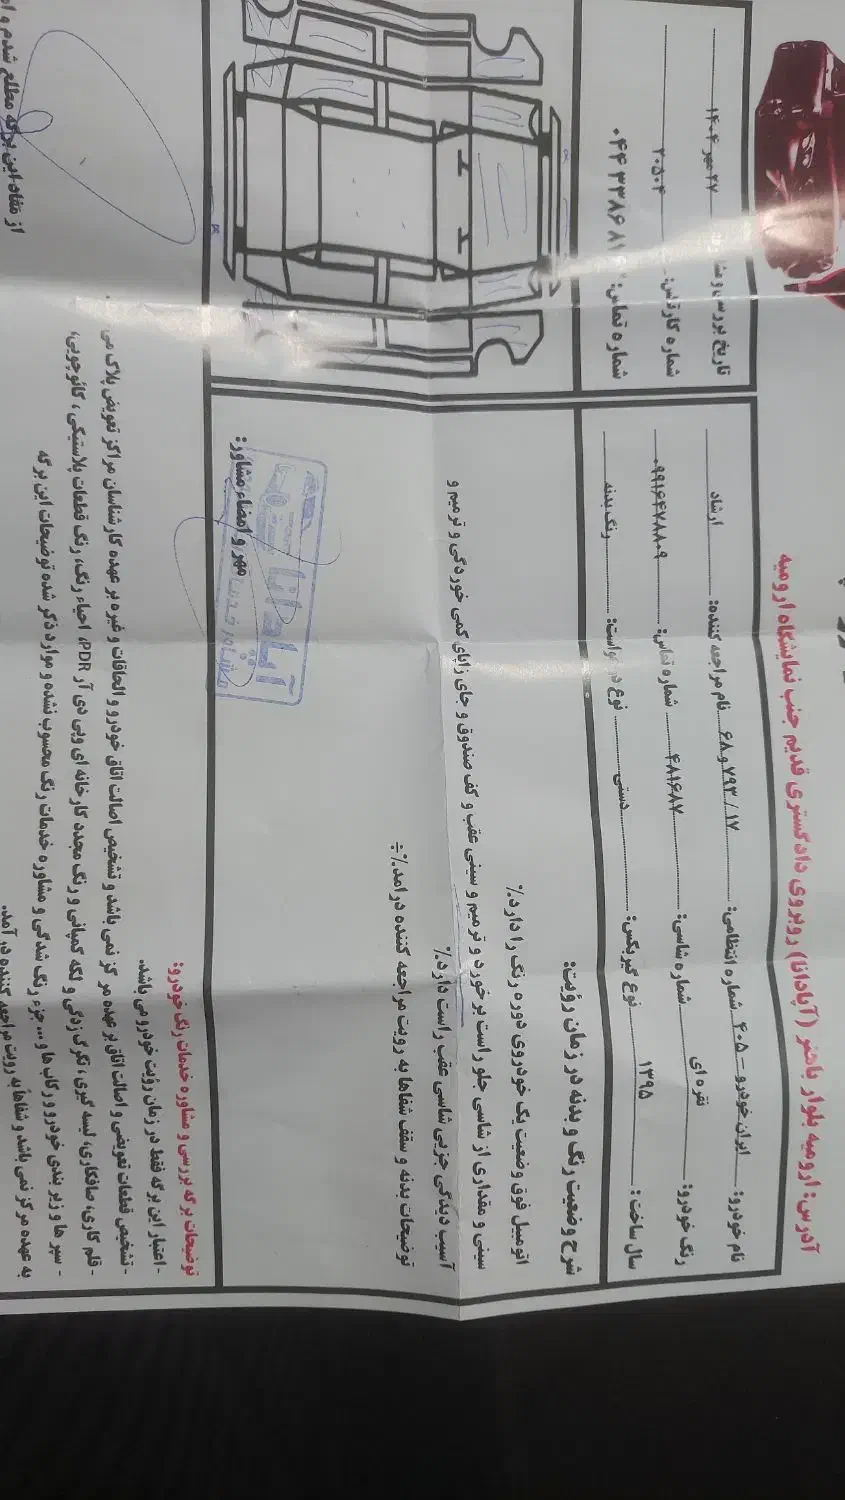 آدرس: ارومیه بلوار باهنر (آبادانا) روبروی دادگستری قدیم جنب نمایشگاه ارومیه
نام خودرو: ایران خودرو - ۴۰۵ شماره انتظامی: ۱۷ / ۷۹۳ و ۶۸ نام مراجعه کننده: ارشاد
رنگ خودرو: نقره ای شماره شاسی: ۴۸۱۶۸۷ شماره تماس: ۰۹۹۱۶۴۷۸۸۰۹
سال ساخت: ۱۳۹۵ نوع گیربکس: دستی نوع درخواست: رنگ بدنه
تاریخ بررسی و مشاوره: ۲۷ مهر ۱۴۰۴
شماره کارتابل: ۲۰۵۰۴
شماره تماس: ۰۴۴۳۳۸۶۸۱
شرح وضعیت رنگ و بدنه در زمان رؤیت:
اتومبیل فوق وضعیت یک خودروی دوره رنگ را دارد.٪
سینی و مقداری از شاسی جلو راست برخورد و ترمیم و سینی عقب و کف صندوق و جای زاپاس کمی خوردگی و ترمیم و
آسیب دیدگی جزیی شاسی عقب راست دارد.٪
توضیحات بدنه و سقف شفاها به رویت مراجعه کننده درآمد.٪
مهر و امضاء مشاور:
آبادانا
مشاور خدمات
توضیحات برگه بررسی و مشاوره خدمات رنگ خودرو:
- اعتبار این برگه فقط در زمان رؤیت خودرو می باشد.
- تشخیص قطعات تعویضی و اصالت اتاق بر عهده مرکز نمی باشد و تشخیص اصالت اتاق خودرو و الحاقات و غیره بر عهده کارشناسان مراکز تعویض پلاک می
- قلم کاری، صافکاری، لیسه گیری، تگرگ زدگی و لکه کمپانی و رنگ مجدد کارخانه ای وپی دی آر PDR، احیاء رنگ، رنگ قطعات پلاستیکی، کائوچویی،
- سپر ها و زیر بندی خودرو و رکاب ها و... جزء رنگ شدگی و مشاوره خدمات رنگ محسوب نشده و موارد ذکر شده توضیحات این برگه
به عهده مرکز نمی باشد و شفاهاً به رویت مراجعه کننده در آمد.
از مفاد این برگه مطلع شدم و